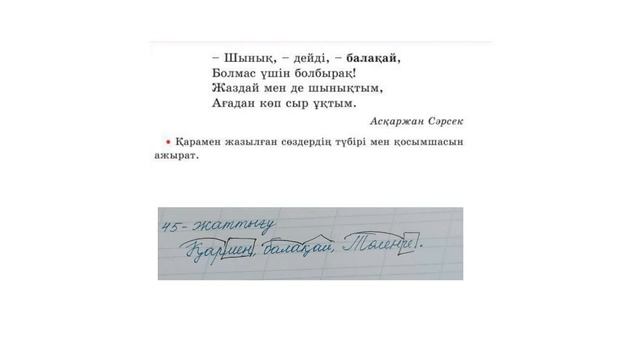 – Шынық, – дейді, – балақай,
Болмас үшін болбырақ!
Жаздай мен де шынықтым,
Ағадан көп сыр ұқтым.
Асқаржан Сәрсек
• Қарамен жазылған сөздердің түбірі мен қосымшасын
ажырат.
45-жаттығу
Қармен, балақай, Төленге.